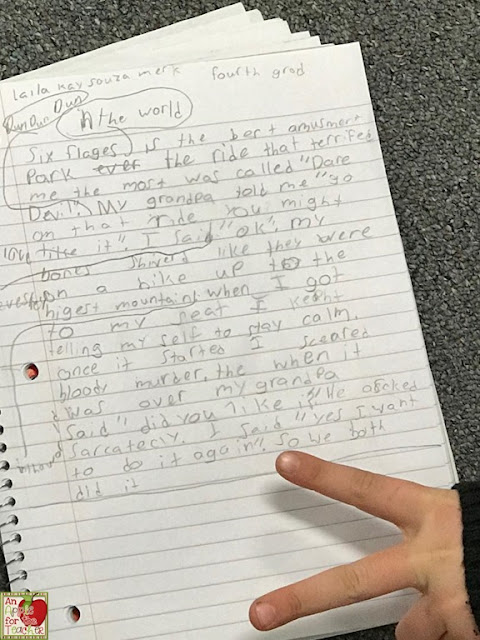 laila kay souza merk fourth grad
Dun Dun Dun
in the world
Six flages, is the bert amusment
Park ever the ride that terrifed
me the most was called "Dare
Devil". My grandpa told me "go
on that ride you might
like it". I said "ok", my
bones shiverd like they were
on a hike up to the
higest mountain when I got
to my seat I keapt
telling my self to stay calm.
once it started I sceared
bloody murder, the when it
was over my grandpa
said " did you like it" He accked
sarcatecly. I said "yes I want
to do it again". so we both
did it
An
Apple
for the
Teacher